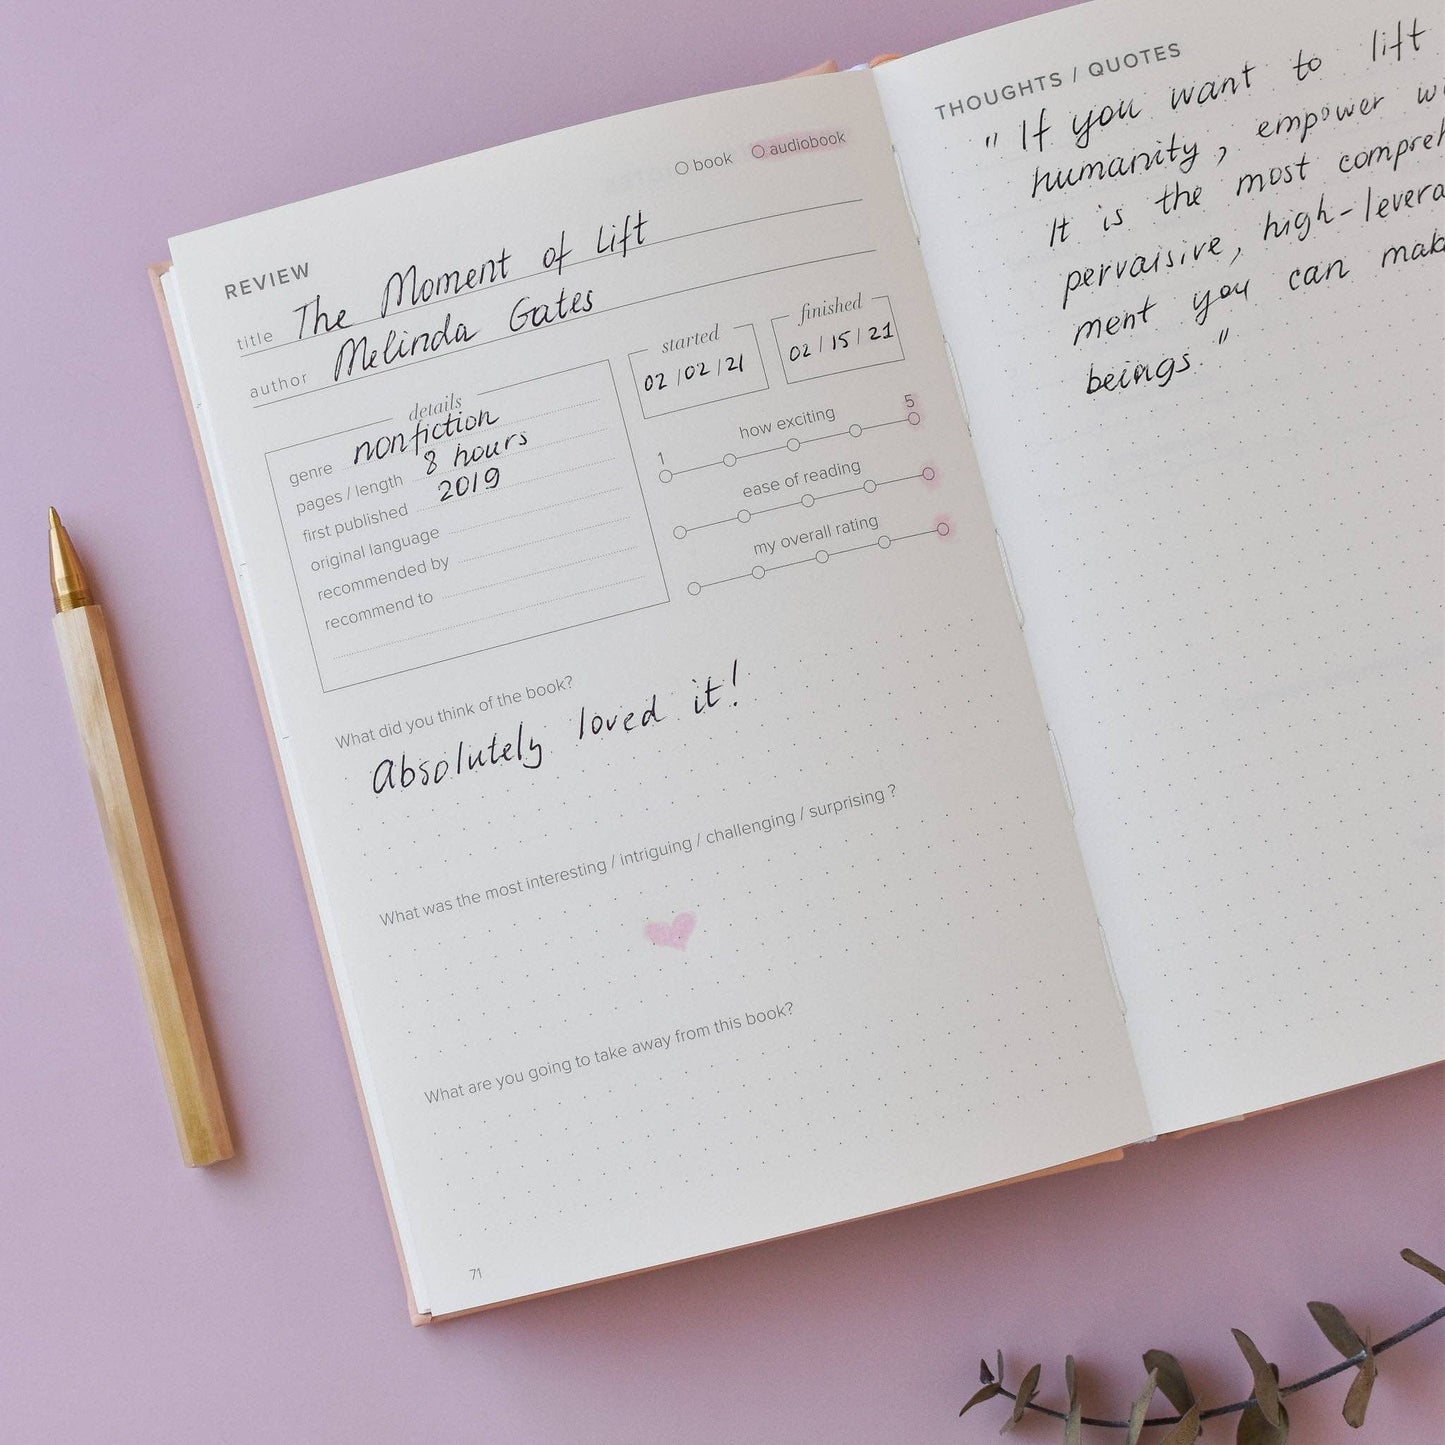 ○ book ○ audiobook
REVIEW
title The Moment of Lift
author Melinda Gates
details
genre nonfiction
pages / length 8 hours
first published 2019
original language
recommended by
recommend to
started
02/02/21
finished
02/15/21
how exciting
1 5
ease of reading
my overall rating
What did you think of the book?
Absolutely loved it!
What was the most interesting / intriguing / challenging / surprising ?
What are you going to take away from this book?
71
THOUGHTS / QUOTES
" If you want to lift
humanity, empower
It is the most
pervaisive,
ment you can
beings."